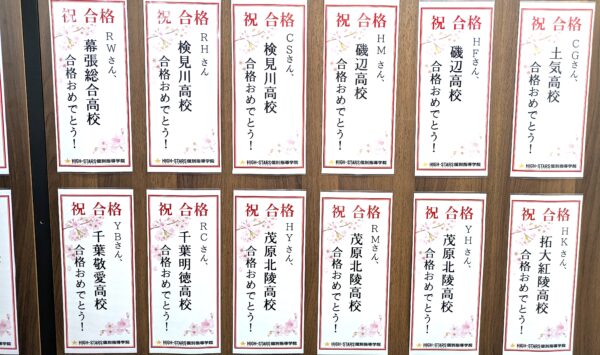 祝 合格
RWさん、
幕張総合高校
合格おめでとう！
HIGH-STARS個別指導学院
祝 合格
RHさん
検見川高校
合格おめでとう！
HIGH-STARS個別指導学院
祝 合格
CSさん、
検見川高校
合格おめでとう！
HIGH-STARS個別指導学院
祝 合格
HMさん、
磯辺高校
合格おめでとう！
HIGH-STARS個別指導学院
祝 合格
HFさん、
磯辺高校
合格おめでとう！
HIGH-STARS個別指導学院
祝 合格
CGさん、
土気高校
合格おめでとう！
HIGH-STARS個別指導学院
祝 合格
YBさん、
千葉敬愛高校
合格おめでとう！
HIGH-STARS個別指導学院
祝 合格
RCさん、
千葉明徳高校
合格おめでとう！
HIGH-STARS個別指導学院
祝 合格
HYさん、
茂原北陵高校
合格おめでとう！
HIGH-STARS個別指導学院
祝 合格
RMさん、
茂原北陵高校
合格おめでとう！
HIGH-STARS個別指導学院
祝 合格
YHさん、
茂原北陵高校
合格おめでとう！
HIGH-STARS個別指導学院
祝 合格
HKさん、
拓大紅陵高校
合格おめでとう！
HIGH-STARS個別指導学院